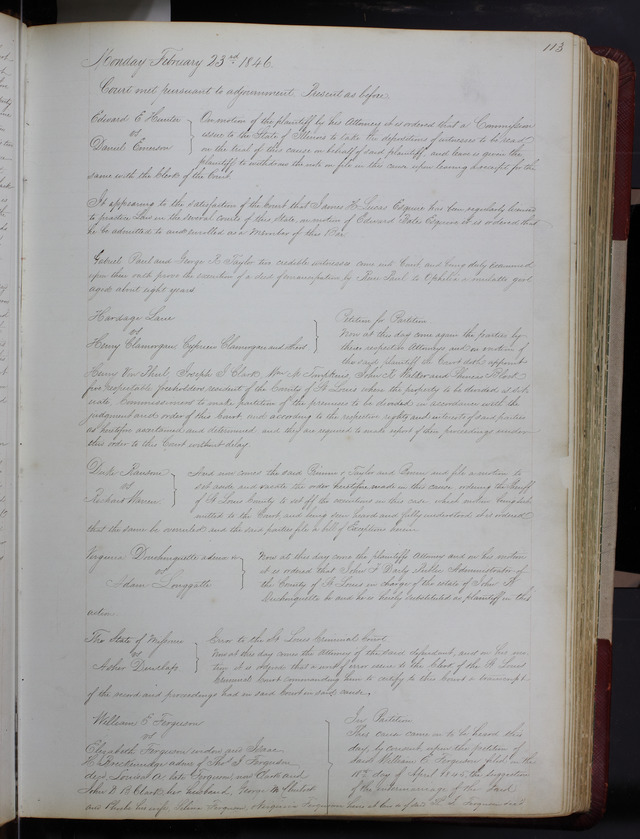 113
Monday February 23rd 1846
Court met pursuant to adjournment Present as before
Edward E Hunter
vs
Daniel Emerson
On motion of the plaintiff by his Attorney it is ordered that a Commission
issue to the State of Illinois to take the depositions of witnesses to be read
on the trial of this cause in behalf of said plaintiff, and leave is given the
plaintiff to withdraw the note on file in this cause upon leaving a receipt for the
same with the Clerk of the Court
It appearing to the satisfaction of the Court that James H. Lucas Esquire has been regularly licensed
to practice Law in the several courts of this State, on motion of Edward Bates Esquire it is ordered that
he be admitted to and enrolled as a Member of this Bar
Gabriel Paul and George R Taylor two credible witnesses came into Court and being duly examined
upon their oath prove the execution of a deed of emancipation by Rene Paul to Ophelia a mulatto girl
aged about eight years
Hardage Lane
vs
Henry Clamorgan Cyprien Clamorgan and
Petition for Partition
Now at this day come again the parties by
their respective Attorneys and on motion of
the said plaintiff the Court doth appoint
Henry Von Phul Joseph S Clark Wm M Tompkins John A Walker and Thomas
five respectable freeholders resident of the County of St Louis where the property to be divided is situate
Commissioners to make partition of the premises to be divided in accordance with the
judgment and order of this Court and according to the respective rights and interests of said parties
as heretofore ascertained and determined and they are required to make report of their proceedings under
this order to this Court without delay
vs
And now comes the said and Taylor and and file a motion to
set aside and vacate the order heretofore made in this cause ordering the Sheriff
of St Louis County to set off the executions in this case which motion being submitted
to the Court and being seen heard and fully understood it is ordered
that the same be overruled and the said parties file a bill of Exceptions herein
Virginia admx
vs
Adam
Now at this day came the plaintiffs Attorney and on his motion
it is ordered that John F Darby Public Administrator of
the County of St Louis in charge of the estate of John B
be and he is hereby substituted as plaintiff in this
action
The State of Missouri
vs
Asher
Error to the St Louis Criminal Court
Now at this day comes the Attorney of the said defendant, and on his motion
it is ordered that a writ of error issue to the Clerk of the St Louis
Criminal Court commanding him to certify to this Court a transcript
of the record and proceedings had in said Court in said cause.
William E Ferguson
vs
Elizabeth Ferguson widow
H Breckenridge admr of Thos S Ferguson
decd, Louisa A late Ferguson now Clark and
John B Clark her husband, George
and Phoebe his wife, Selina Ferguson
In Partition
This cause came on to be heard this
day by consent upon the petition of
said William E Ferguson filed on the
18th day of April 1845, the suggestion
of the intermarriage of the said